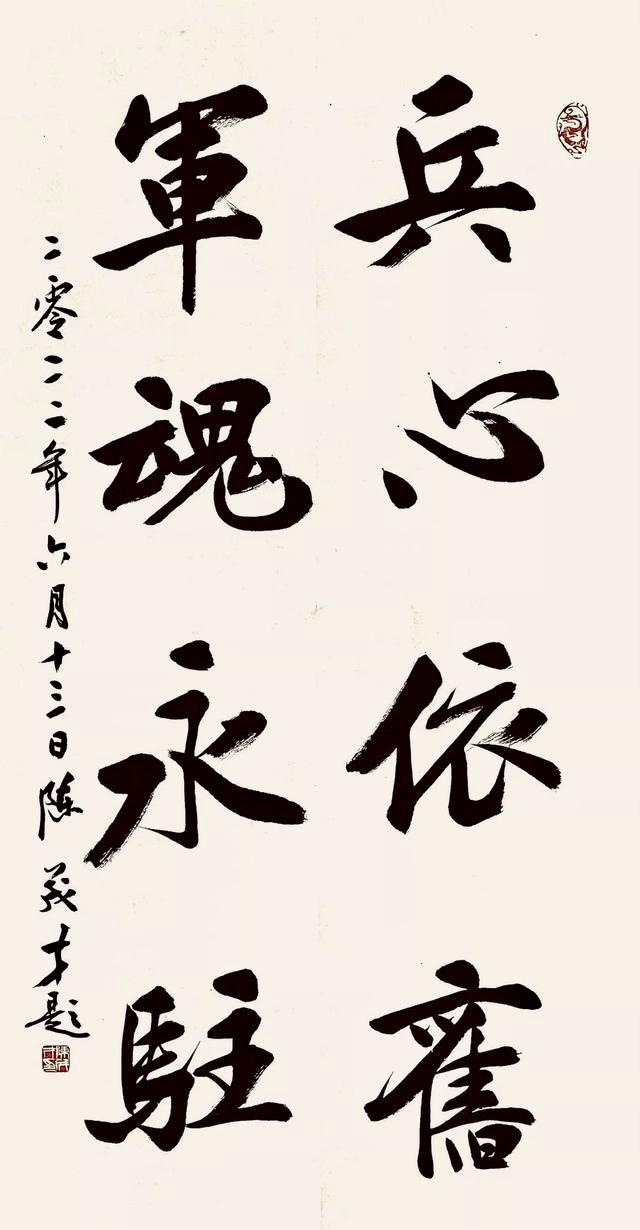 兵心依舊
軍魂永駐
二零二二年六月十三日陈義才題